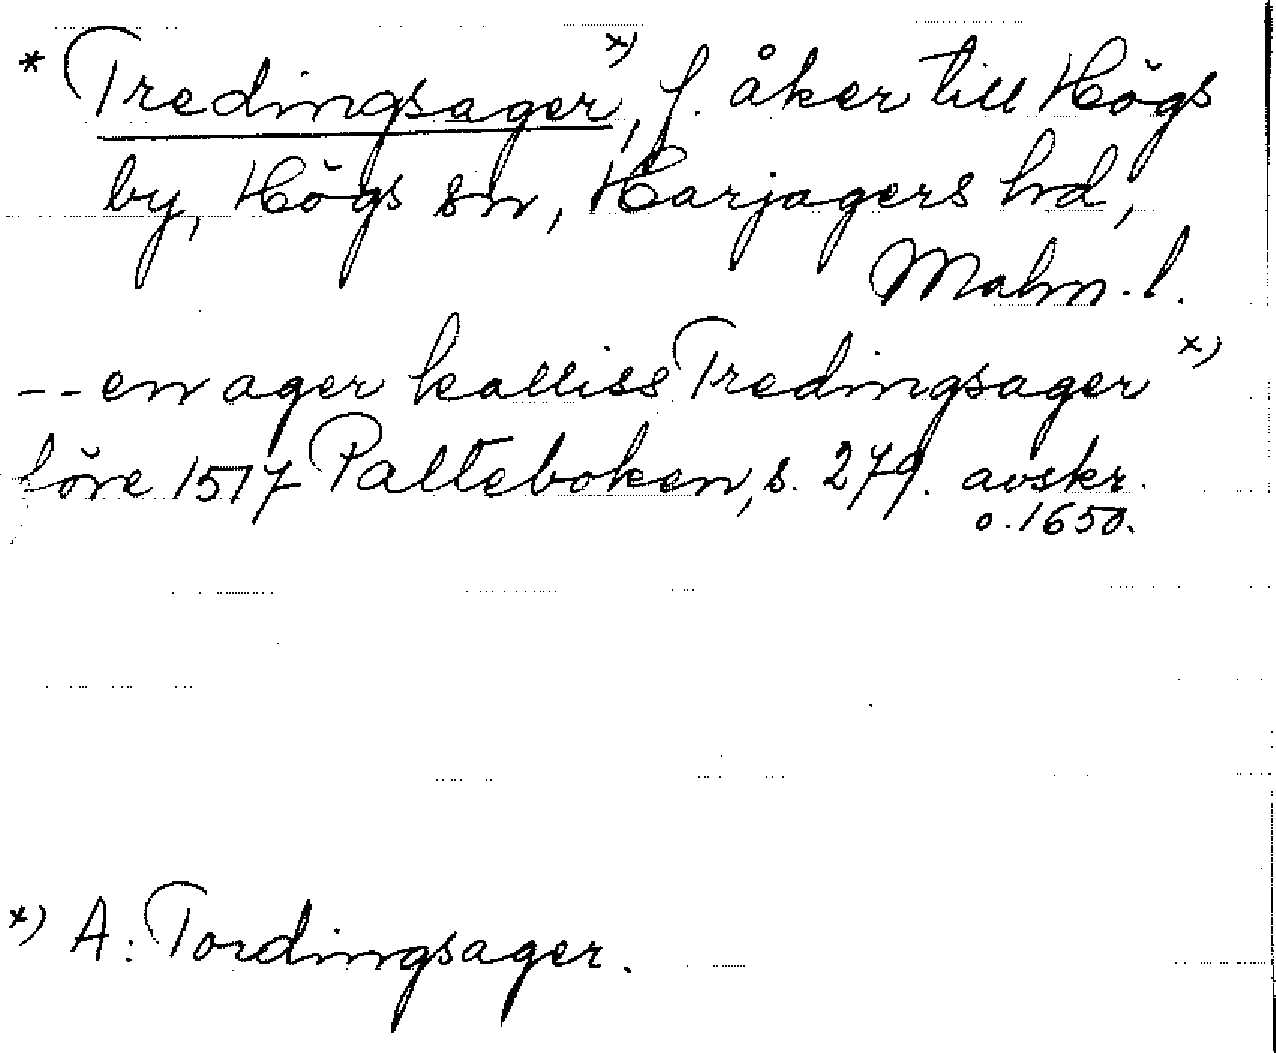 * Tredingsager x), f. åker till Högs
by, Högs sn, Harjagers hd,
Malm. l.
-- en ager kalliss Tredingsager x)
före 1517 Palteboken, s. 279. avskr.
o. 1650.
x) A: Tordingsager.